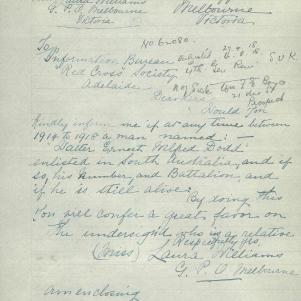 Laura Williams
G. P. O Melbourne
Victoria
Melbourne
Victoria
No 6080.
To
Information Bureau
Red Cross Society
Adelaide
Would you
Kindly inform me if at any time between
1914 to 1918 a man named: –
Walter Ernest Dodd
enlisted in South Australia, and if
so, his number, and Battalion, and
if he is still alive.
By doing this
you will confer a great favor on
The undersigned who is a relative
Respectfully yrs,
(Miss) Laura Williams
G. P. O Melbourne
am enclosing